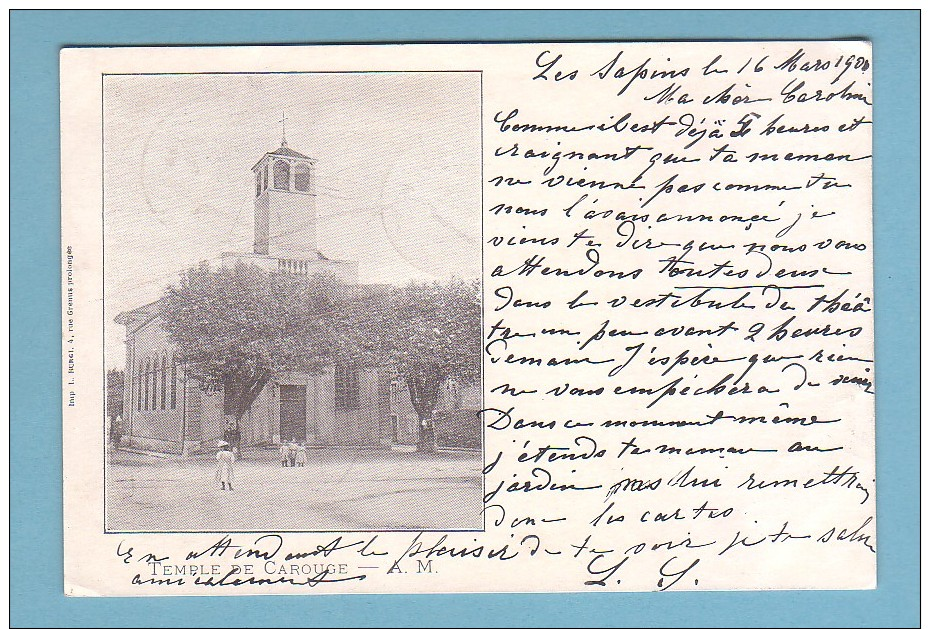 Les Sapins le 16 Mars 190
Ma chèr Carolin
Comme il est déjà 5 heures et
craignant que ta maman
ne vienne pas comme tu
nous l'avais annoncé je
viens te dire que nous vous
attendons toutes deux
dans le vestibule du théâ
tre un peu avant 2 heures
demain J'espère que rien
ne vous empêchera de venir
Dans ce momment même
j'étends ta maman au
jardin lui remettrai
donc les cartes
En attendant le plaisir de te voir je te salue
amicalement L. S.
TEMPLE DE CAROUGE — A. M.
Imp. I. BURGI, 4, rue Grenus prolongée